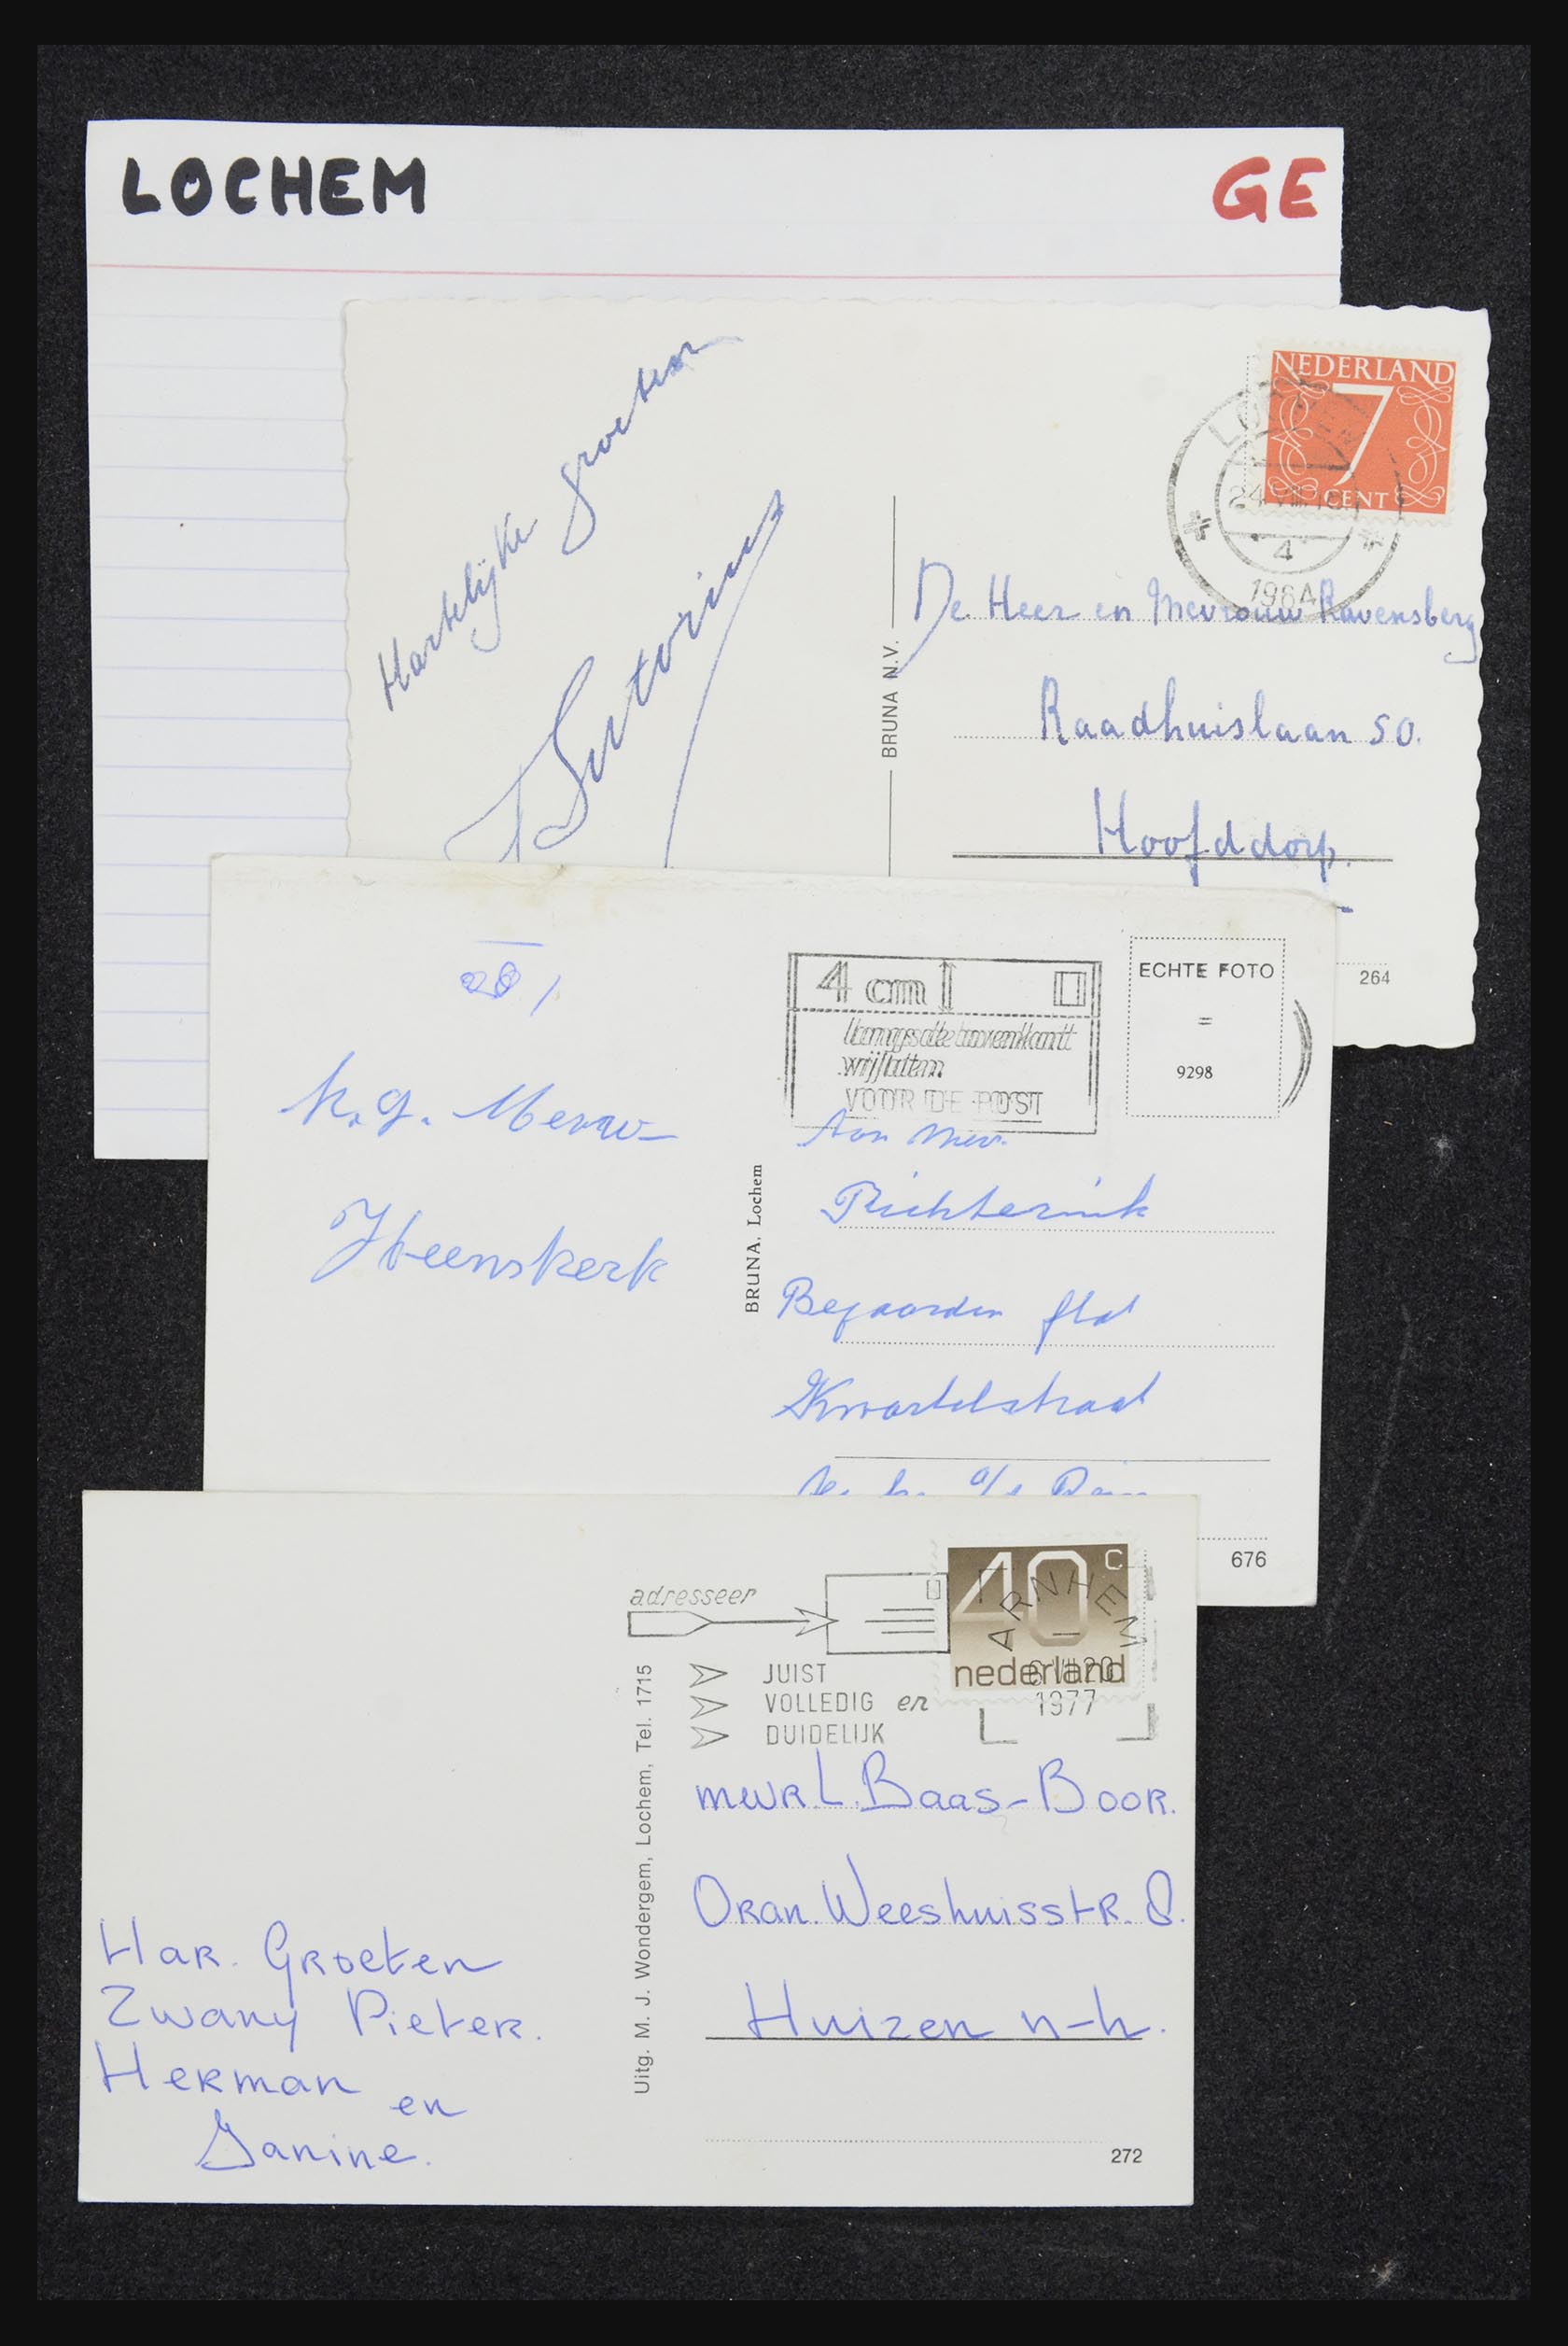 LOCHEM
GE
Hartelijke groeten
NEDERLAND
7
CENT
LOCHEM
4
1964
De Heer en Mevrouw Ravensberg
Raadhuislaan 50.
Hoofddorp.
BRUNA N.V.
264
4 cm
langs de bovenkant
vrijlaten
VOOR DE POST
ECHTE FOTO
=
9298
Aan Mev.
Bejaarden flat
Kwartelstraat
BRUNA, Lochem
Heemskerk
676
adresseer
JUIST
VOLLEDIG en
DUIDELIJK
40 c
nederland
ARNHEM
1977
Uitg. M. J. Wondergem, Lochem, Tel. 1715
mwR L. Baas-Boor.
Oran. Weeshuisstr. 8.
Huizen n-h.
Har. Groeten
Zwany Pieter.
Herman
en
Janine.
272